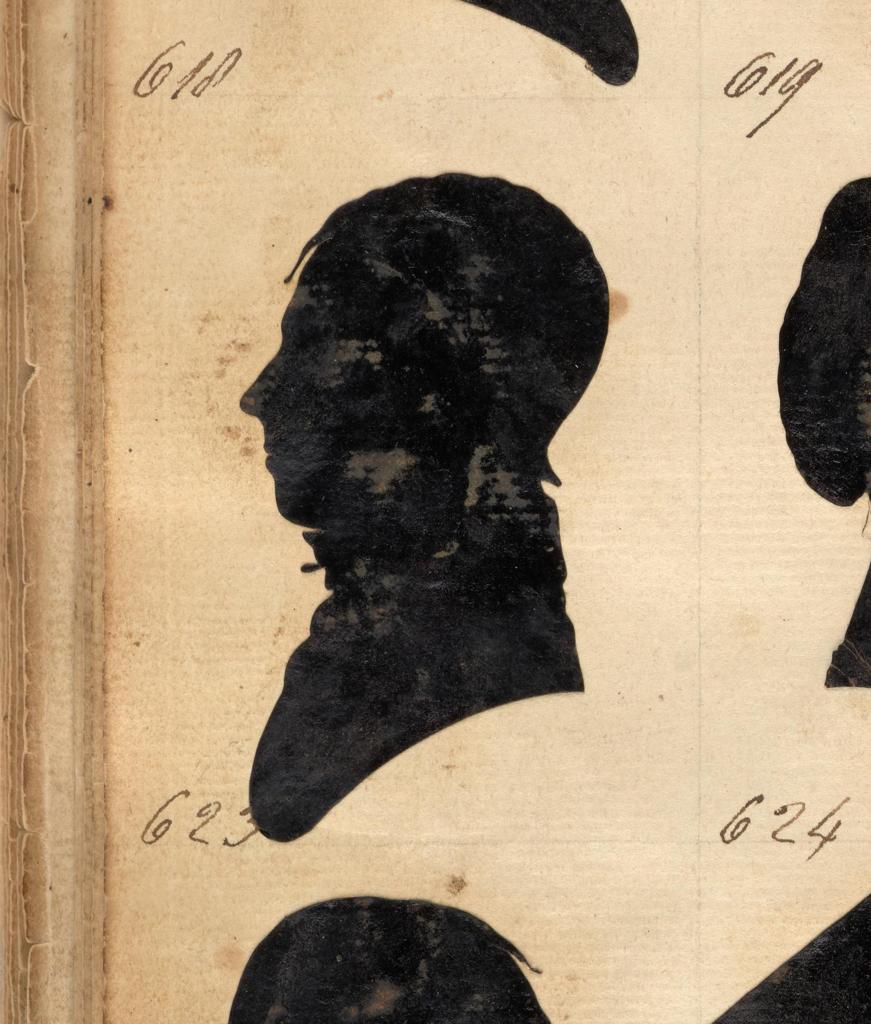 618 619
623 624